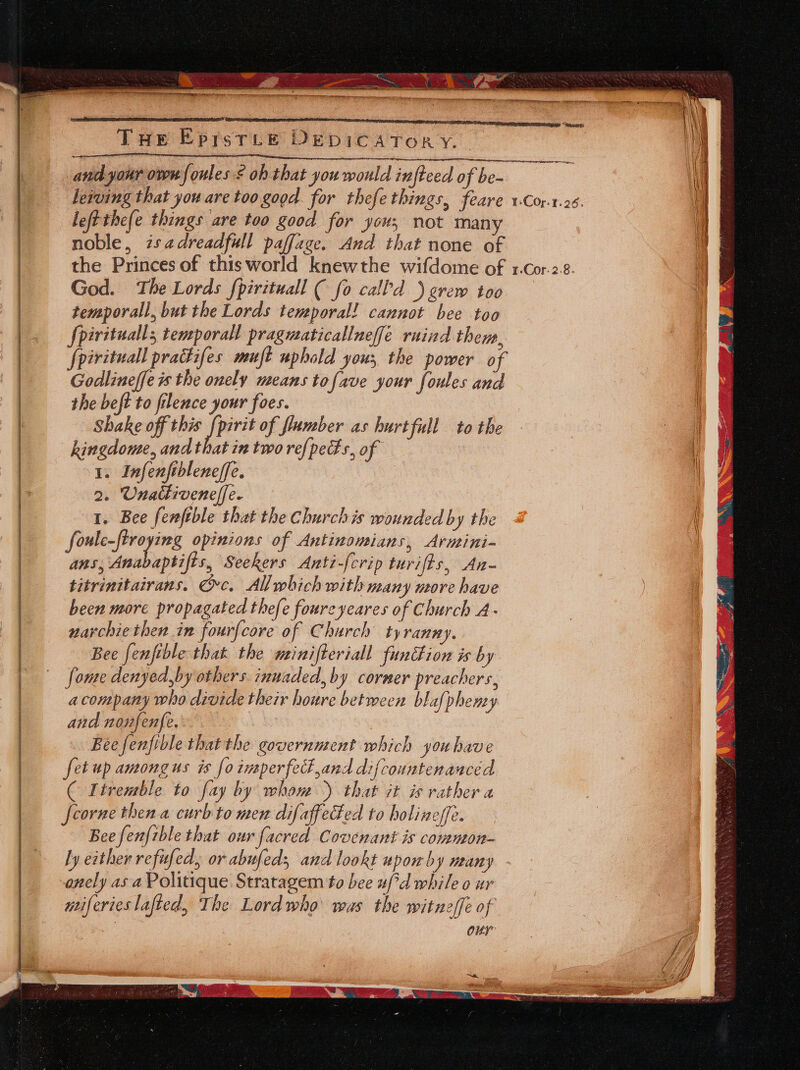 THE EPISTLE DEDICATORY.
and your own ſoules ? oh that you would inſteed of be-
leiving that you are too good for theſe things, feare 1.Cor.1.26.
leſt theſe things are too good for you; not many
noble, is a dreadfull paſſage. And that none of
the Princes of this world knew the wiſdome of 1.Cor.2.8.
God. The Lords ſpirituall ( ſo call'd ) grew too
temporall, but the Lords temporall cannot bee too
ſpirituall; temporall pragmaticallneſſe ruind them,
ſpirituall practiſes muſt uphold you; the power of
Godlineſſe is the onely means to ſave your ſoules and
the beſt to ſilence your foes.
Shake off this ſpirit of ſlumber as hurtfull to the
kingdome, and that in two reſpects, of
1. Inſenſibleneſſe.
2. Unactiveneſſe.
1. Bee ſenſible that the Church is wounded by the
ſoule-ſtroying opinions of Antinomians, Armini-
ans, Anabaptiſts, Seekers Anti-ſcrip turiſts, An-
titrinitairans. &c. All which with many more have
been more propagated theſe foure yeares of Church A-
narchie then in fourſcore of Church tyranny.
Bee ſenſible that the miniſteriall function is by
ſome denyed, by others inuaded, by corner preachers,
a company who divide their houre between blaſphemy
and nonſenſe.
Bee ſenſible that the government which you have
ſet up among us is ſo imperfect, and diſcountenanced
( I tremble to ſay by whom ) that it is rather a
ſcorne then a curb to men diſaffected to holineſſe.
Bee ſenſible that our ſacred Covenant is common-
ly either refuſed, or abuſed; and lookt upon by many
onely as a Politique Stratagem to bee uſ'd while o ur
miſeries laſted, The Lord who was the witneſſe of
our